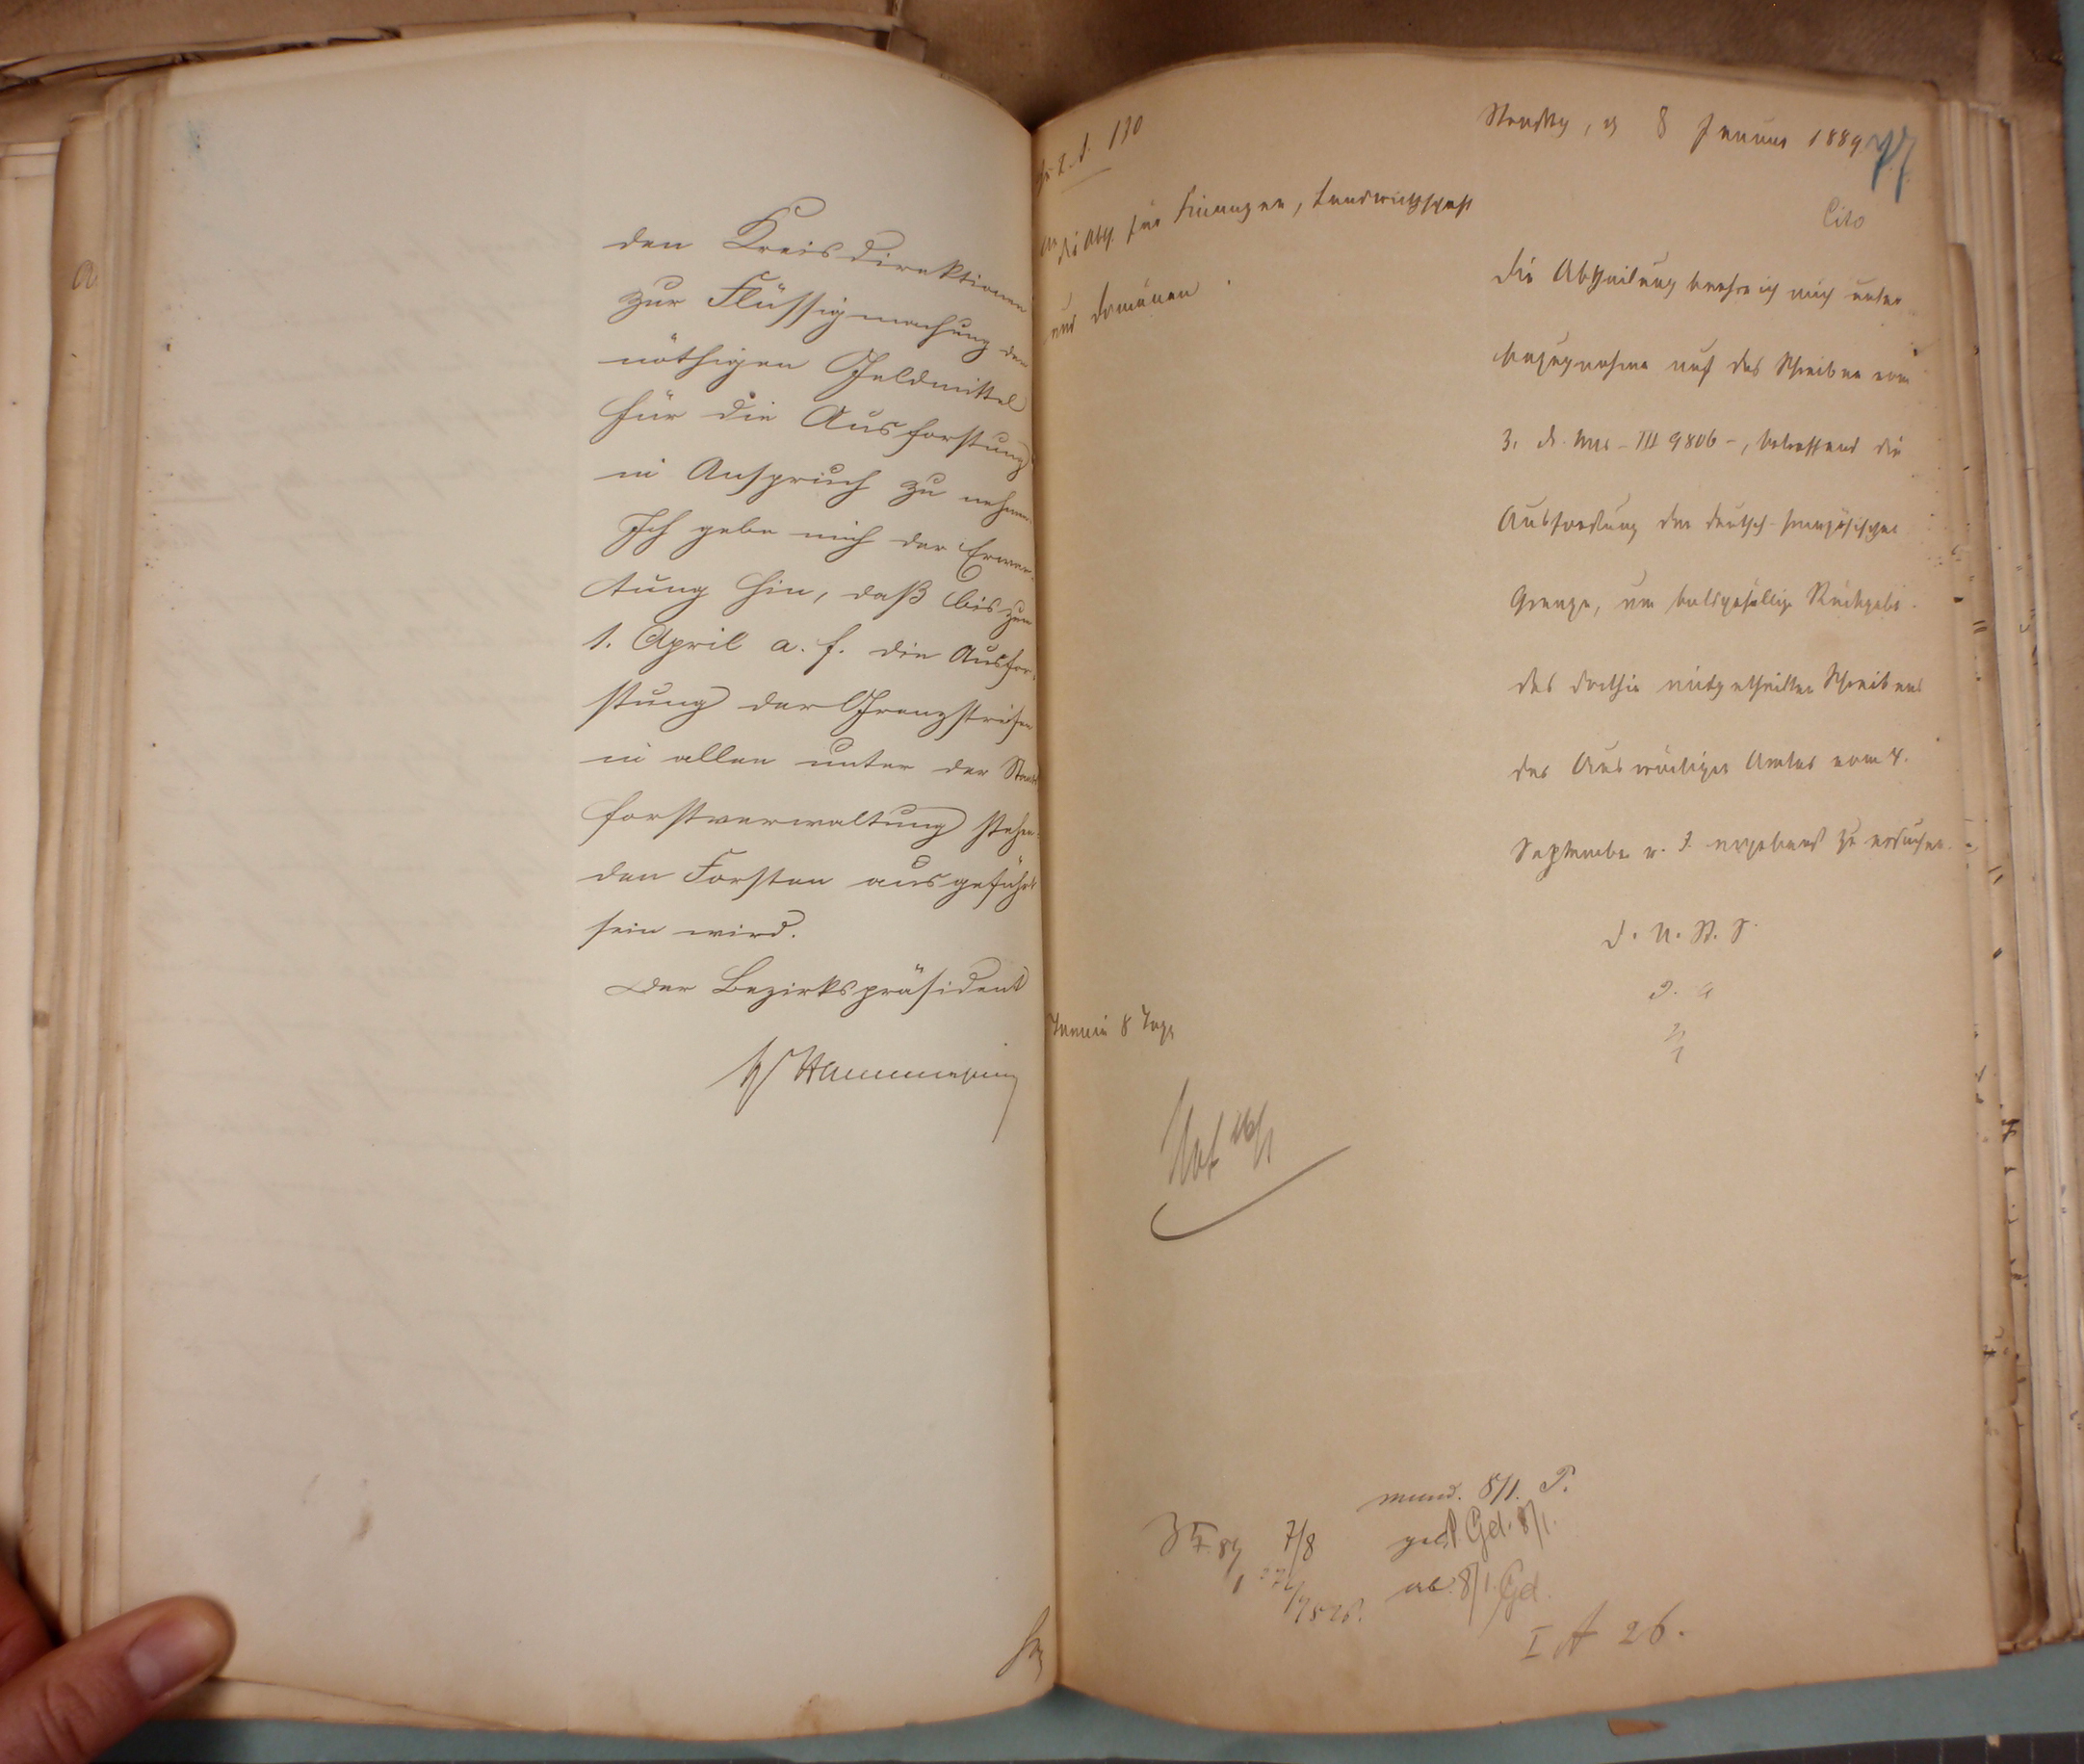 den Kreisdirektionen
zur Flüssigmachung der
nöthigen Geldmittel
für die Ausforstung
in Anspruch zu nehmen.
Ich gebe mich der Erwar-
tung hin, daß bis zum
1. April a. f. die Ausfor-
stung der Grenzstreifen
in allen unter der Staats
forstverwaltung stehen-
den Forsten ausgeführt
sein wird.
Der Bezirkspräsident
Hammerstein
130
Straßbg, d 8 Januar 1889
77
Cito
An die Abth. für Finanzen, Landwirthschaft
und Domänen
Die Abtheilung beehre ich mich unter
Bezugnahme auf das Schreiben vom
3. d. Mts - III 9806 -, betreffend die
Ausforstung der deutsch-französischen
Grenze, um baldgefällige Rückgabe
des dorthin mitgetheilten Schreibens
des Auswärtigen Amtes vom 4.
September v. J. ergebenst zu ersuchen.
D. U. St. S.
J. A
Termin 8 Tage
mund. 8/1. P.
7/8
Gel. 8/1.
ab. 8/1. Gel.
I A 26.